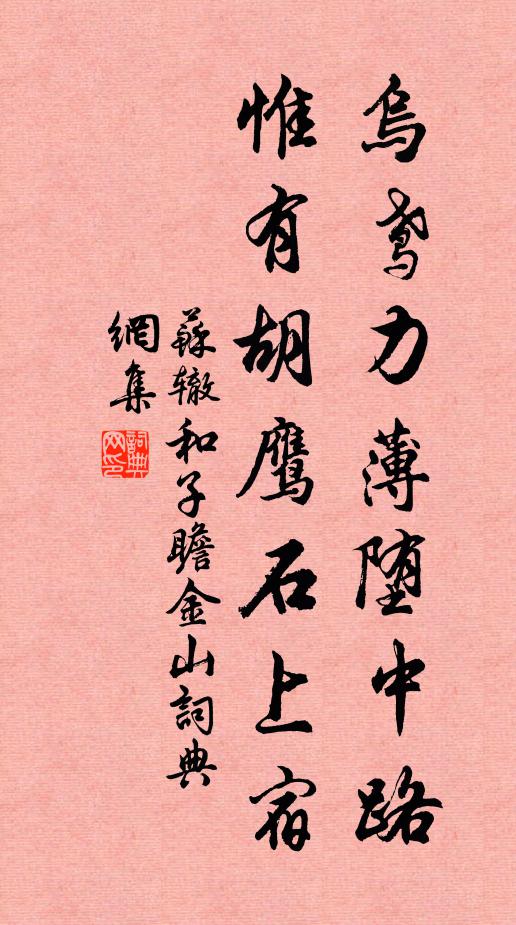 烏鳶力薄堕中路
惟有胡鹰石上宿
蘇辙和子瞻金山詞典
網集
詞典网印